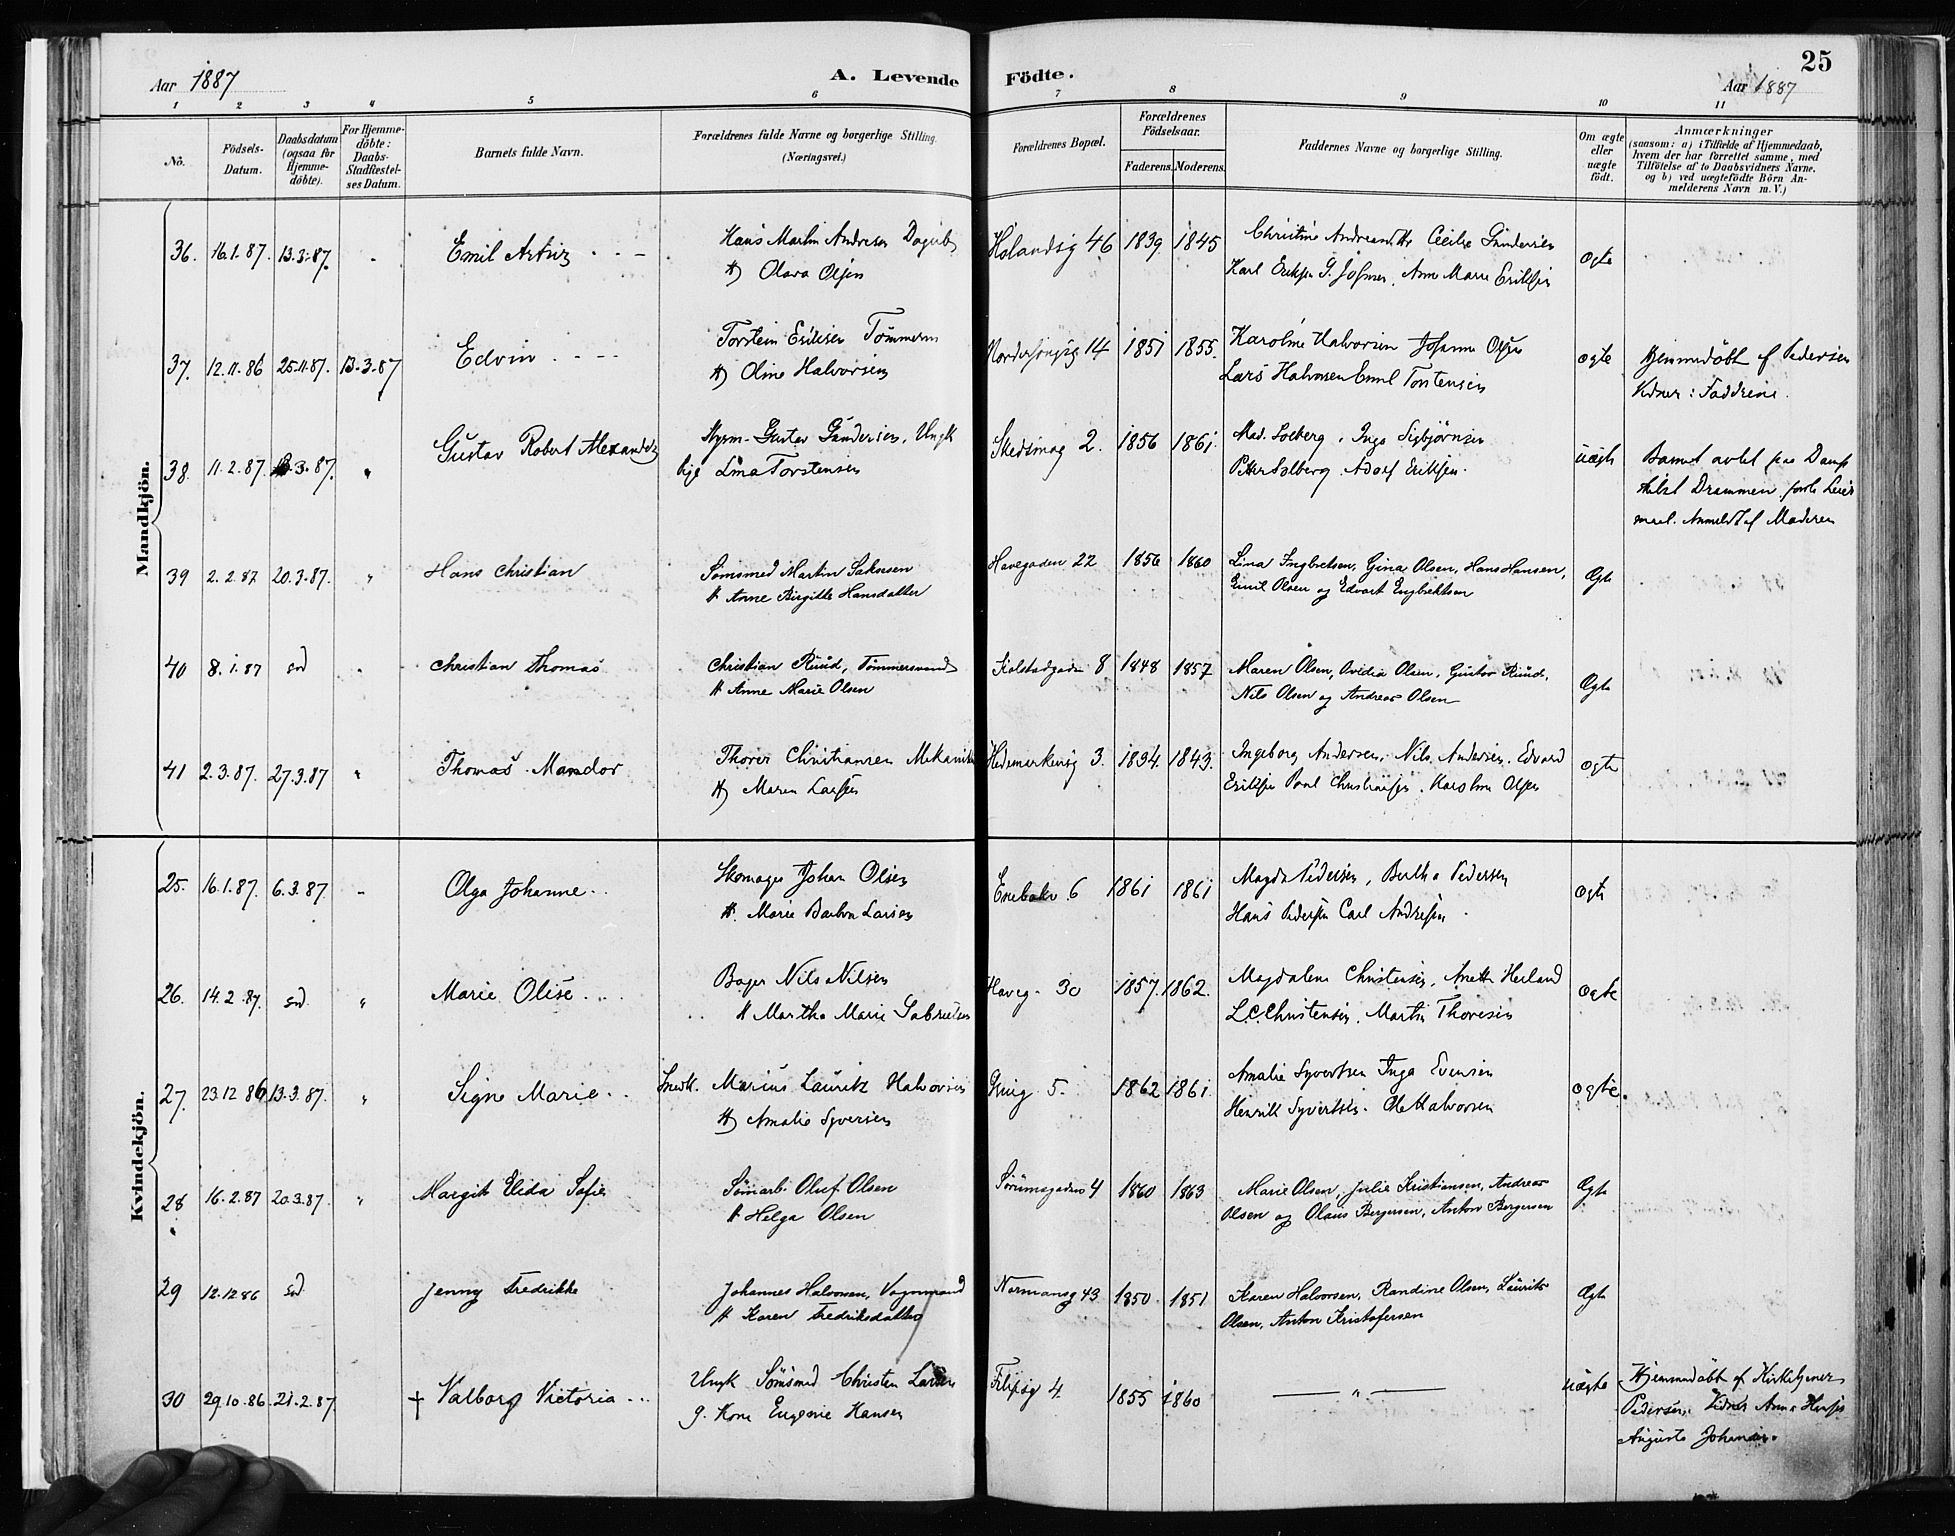 Aar 1887
A. Levende Födte.
25
Aar 1887
1 2 3 4 5 6 7 8 9 10 11
No.
Födsels-
Datum.
Daabsdatum
(ogsaa for
Hjemme-
döbte).
For Hjemme-
döbte:
Daabs-
Stadfæstel-
ses Datum.
Barnets fulde Navn.
Forældrenes fulde Navne og borgerlige Stilling.
(Næringsvei.)
Forældrenes Bopæl.
Forældrenes
Födselsaar.
Faderens. Moderens.
Faddernes Navne og borgerlige Stilling.
Om ægte
eller
uægte
födt.
Anmærkninger
(saasom: a) i Tilfælde af Hjemmedaab,
hvem der har forrettet samme, med
Tilföielse af to Daabsvidners Navne,
og b) ved uægtefödte Börn An-
melderens Navn m. V.)
Mandkjön.
36. 16.1.87. 13.3.87. Emil
Hans Martin Andresen
H) Olava Olsen
46 1839. 1845
Christine Cecilie Gundersen
Karl Eriksen G. Johnsen, Anne Marie Eriksen
ægte
37. 12.11.86 25.11.87. 13.3.87 Edvin
Torstein Eriksen Tömmerm
H) Oline Halvorsen
14 1851 1855.
Karoline Halvorsen Johanne Olsen
Lars Halvorsen Emil Torstensen
ægte
Hjemmedöbt af Pedersen
Vidner: Faddrene.
38. 11.2.87. 3.87. Gustav Robert Alexander
Gustav Gundersen, Ungk
Pige Lina Torstensen
2. 1856 1861.
Mad. Solberg, Inga Sigbjörnsen
Petter Solberg. Adolf Eriksen.
uægte
Barnet avlet paa Damp
Drammen
Anmeldt af Moderen
39 2.2.87 20.3.87. Hans Christian
Martin
H Anne Birgitte Hansdatter
Havegaden 22 1856 1860
Lina Ingbretsen, Gina Olsen, Hans Hansen,
Emil Olsen og Edvart Engbrektsen
Ægte
40 8.1.87 sd Christian Thomas
Christian Ruud, Tömmersmand
H Anne Marie Olsen
Kolstadgaden 8 1848 1857
Maren Olsen, Ovidia Olsen, Gustav Ruud,
Nils Olsen og Andreas Olsen
Ægte
41 2.3.87. 27.3.87 Thomas Mandor
Thorer Christiansen Mekanik
H) Maren Larsen
Hedemarkensg 3. 1834. 1843.
Ingeborg Andersen, Nils Andersen, Edvard
Eriksen Paul Christiansen, Karoline Olsen
ægte
Kvindekjön.
25. 16.1.87. 6.3.87. Olga Johanne
Skomager Johan Olsen
H. Marie Larsen
6 1861 1861
Magda Pedersen, Bertha Pedersen
Hans Pedersen Carl Andresen
ægte
26. 14.2.87. sd Marie Olise
Bager Nils Nilsen
H Martha Marie Gabrielsen
Haveg. 30 1857. 1862.
Magdalena Christensen, Anette Heiland
L.C. Christensen. Martin Thoresen
ægte
27. 23.12 86 13.3.87. Signe Marie
Snedk. Marius Lauritz Halvorsen
H) Amalie Syversen
5. 1862 1861.
Amalie Syvertsen Inga Evensen
Henrik Syvertsen. Ole Halvorsen
ægte.
28 16.2.87 20.3.87. Margit Elida Sofie
Oluf Olsen
H Helga Olsen
Sörumsgaden 4 1860 1863
Marie Olsen, Julie Kristiansen, Andreas
Olsen og Olaus Bergersen, Anton Bergersen
Ægte
29 12.12 86 sd Jenny Fredrikke
Johannes Halvorsen, Vognmand
H Karen Fredriksdatter
Normansg 43 1850 1851
Karen Halvorsen, Randine Olsen, Laurits
Olsen, Anton Kristofersen
Ægte
30 29.10.86. 21.2.87. † Valborg Victoria
Ungk Christen Larsen
g. Kone Eugenie Hansen
Filipsg 4 1855 1860
— „ —
uægte
Hjemmedöbt af Kirketjener
Pedersen. Vidner Anna
Augusta Johansen.